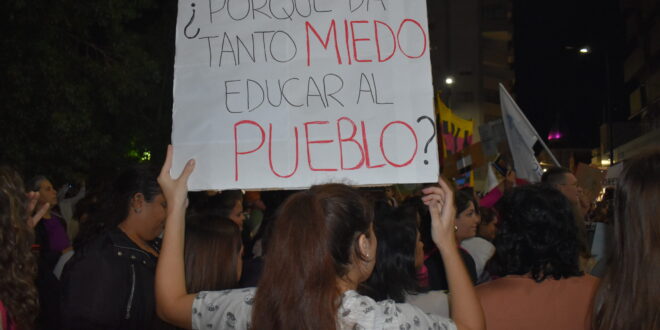 ¿PORQUE DA
TANTO MIEDO
EDUCAR AL
PUEBLO?